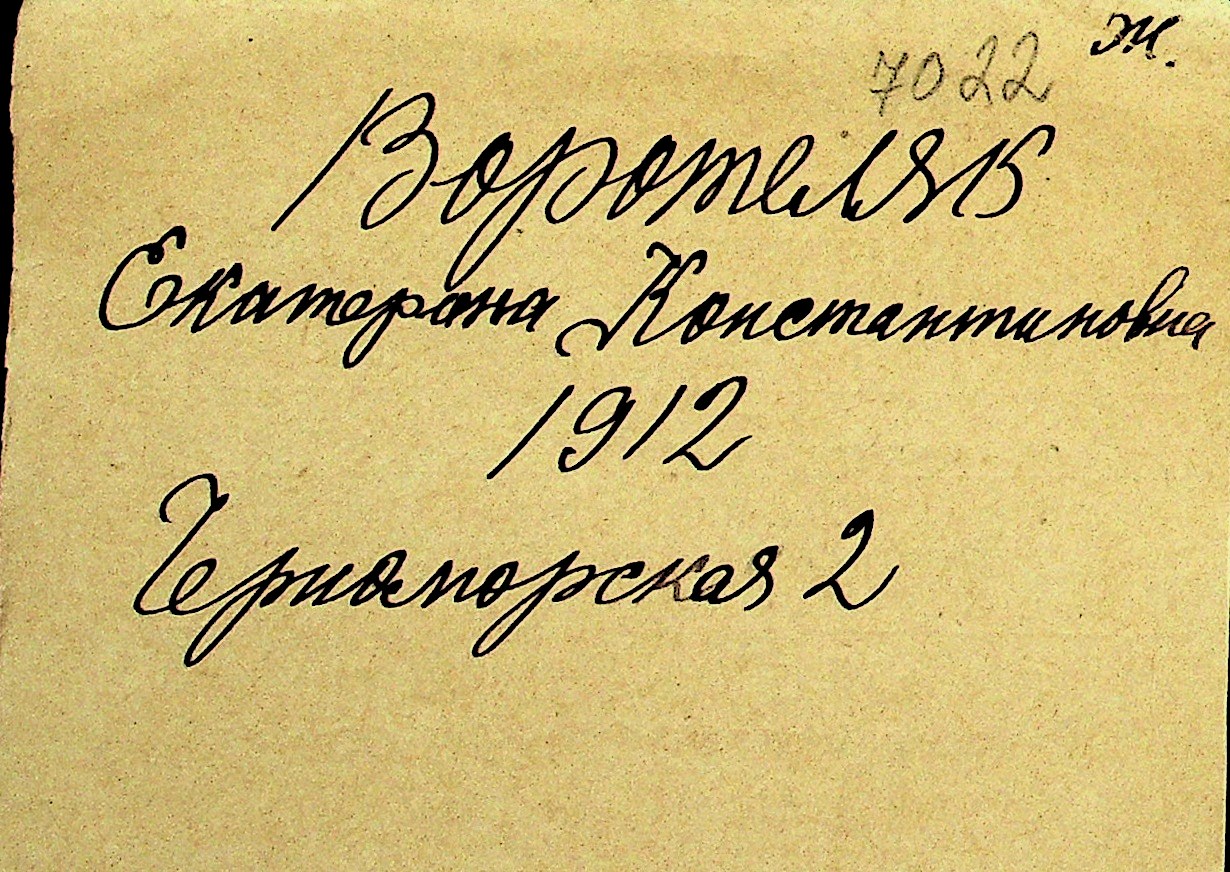 ж.
7022
Воротеляк
Екатерина Константиновна
1912
Черноморская 2